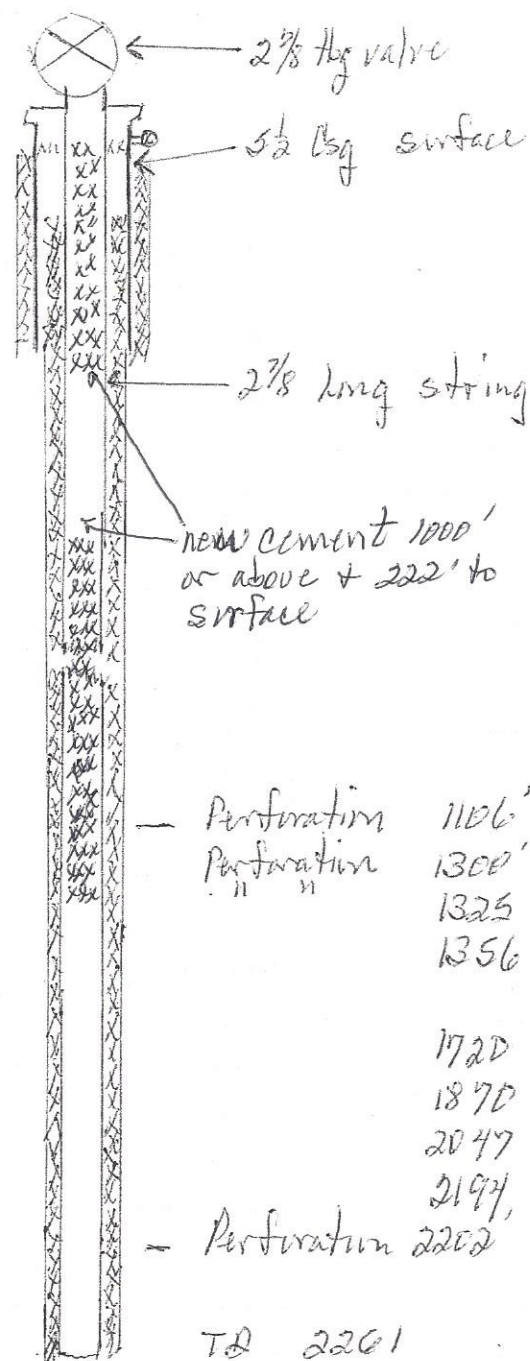 2 7/8 tbg valve
5 1/2 Csg surface
2 7/8 Long string
new cement 1000'
or above + 222' to
surface
Perforation 1106'
Perforation 1300'
" " 1325
1356
1720
1870
2047
2194,
Perforation 2202'
TD 2261